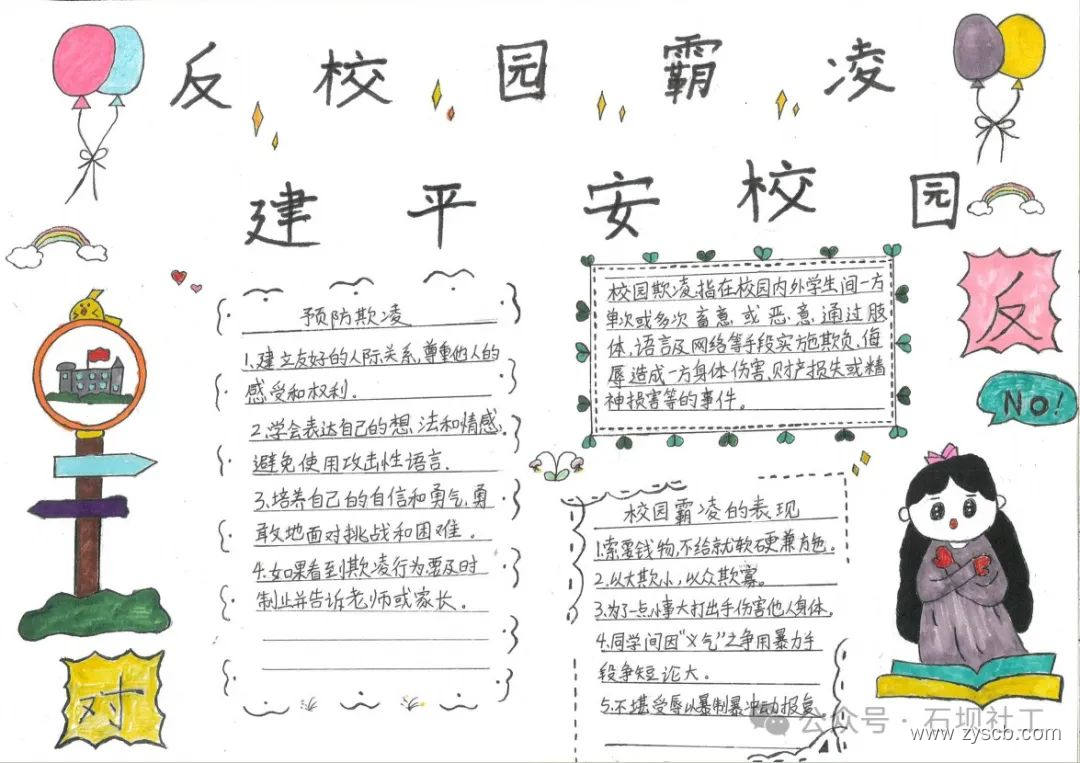 反校园霸凌
建平安校园
预防欺凌
1.建立友好的人际关系,尊重他人的
感受和权利。
2.学会表达自己的想法和情感,
避免使用攻击性语言.
3.培养自己的自信和勇气,勇
敢地面对挑战和困难。
4.如果看到欺凌行为要及时
制止并告诉老师或家长。
校园欺凌,指在校园内外学生间一方
单次或多次蓄意或恶意通过肢
体、语言及网络等手段实施欺负、侮
辱造成一方身体伤害、财产损失或精
神损害等的事件。
校园霸凌的表现
1.索要钱物,不给就软硬兼施。
2.以大欺小,以众欺寡。
3.为了一点小事大打出手伤害他人身体.
4.同学间因"义气"之争用暴力手
段争短论大。
5.不堪受辱以暴制暴冲动报复
反
No!
对
公众号·石坝社工
www.zyscb.com